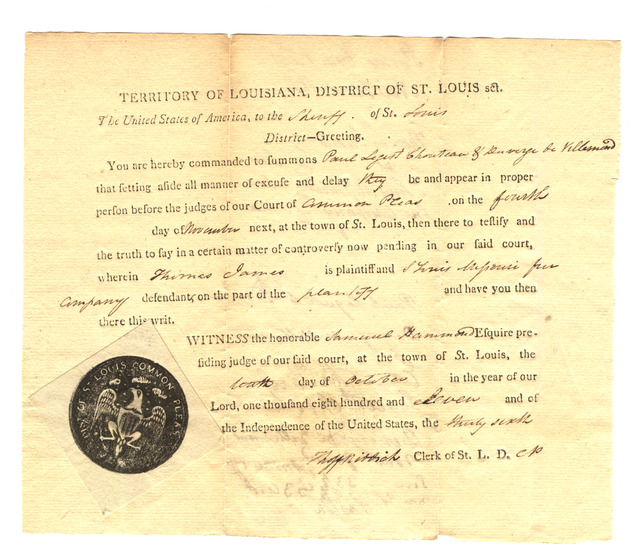 TERRITORY OF LOUISIANA, DISTRICT OF ST. LOUIS sct.
The United States of America, to the Sheriff of St. Louis
District—Greeting.
You are hereby commanded to summons Paul Legist Chouteau & Duverge de Villemond
that setting aside all manner of excuse and delay they be and appear in proper
person before the judges of our Court of Common Pleas on the fourth
day of November next, at the town of St. Louis, then there to testify and
the truth to say in a certain matter of controversy now pending in our said court,
wherein Thomas James is plaintiff and St Louis Missouri fur
company defendants on the part of the plaintiff and have you then
there this writ.
WITNESS the honorable Samuel Hammond Esquire pre-
siding judge of our said court, at the town of St. Louis, the
day of October in the year of our
Lord, one thousand eight hundred and eleven and of
the Independence of the United States, the thirty sixth
Clerk of St. L. D. C P
OF ST LOUIS COMMON PLEAS